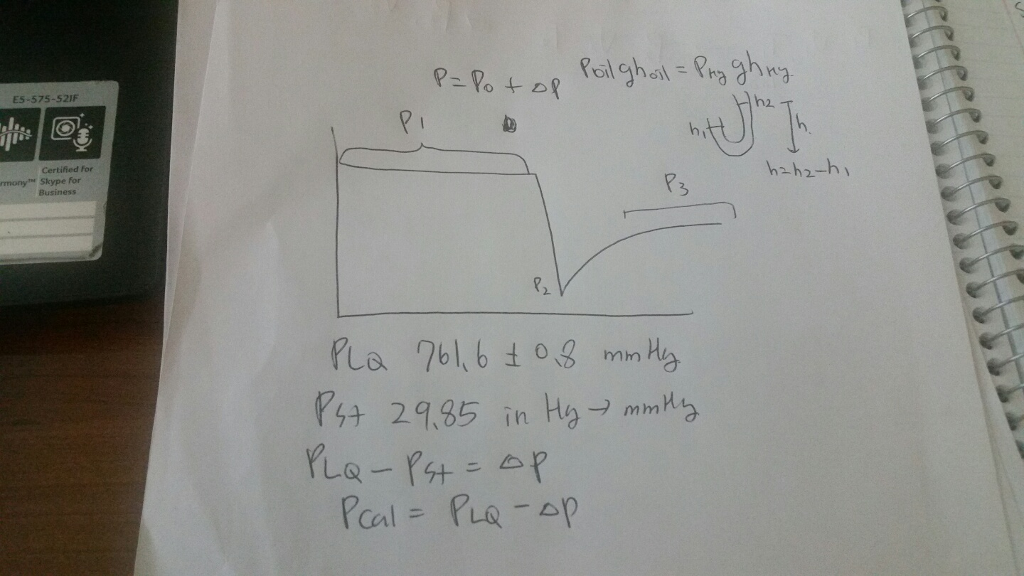 E5-575-52IF
Certified for
Skype for
Business
P = P0 + △P
Poil g hoil = PHg g hHg
P1
h1
h2
h
h = h2 - h1
P3
P2
PLQ 761.6 ± 0.8 mmHg
Pst 29.85 in Hg → mmHg
PLQ - Pst = △P
Pcal = PLQ - △P